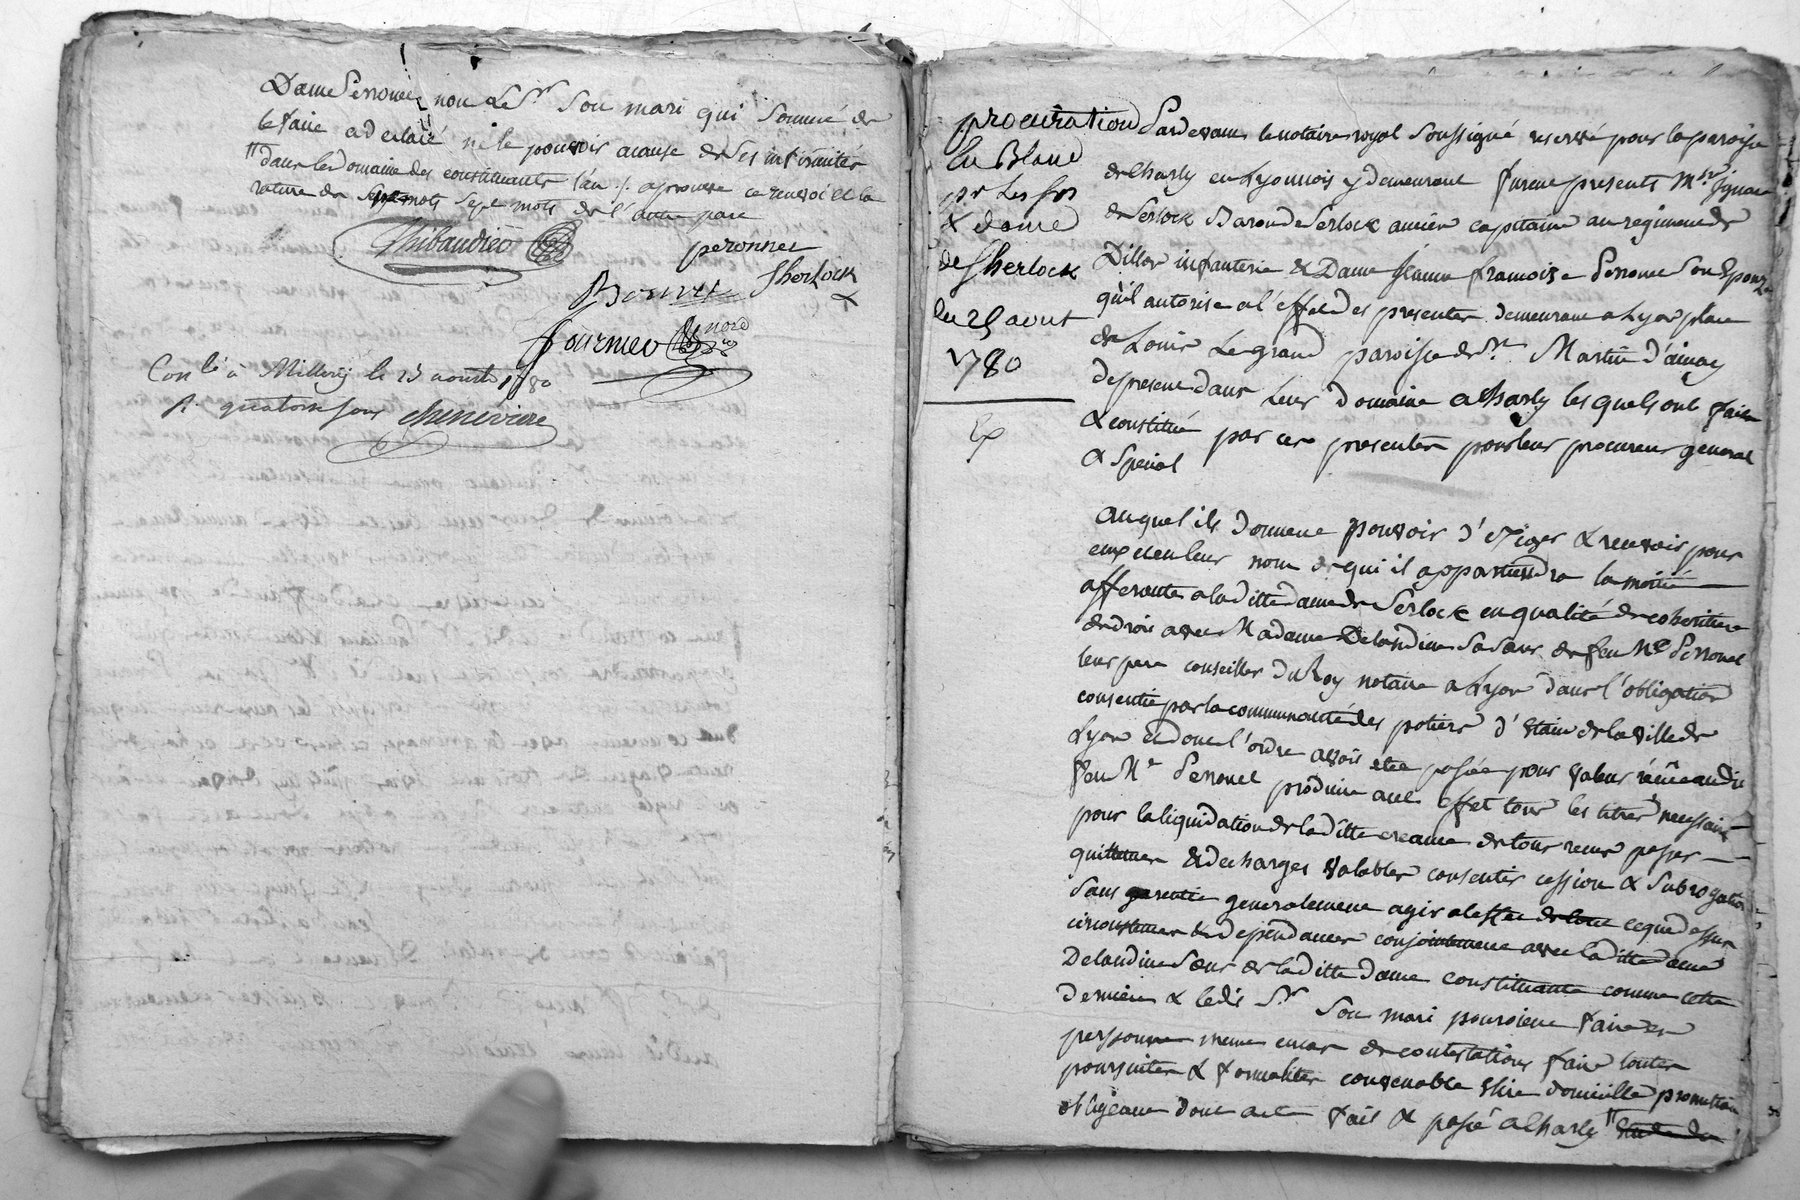 Dame Peronnet non Le Sr Son mari qui Sommé de
le faire a declaré ne le pouvoir acause de Ses infirmités
dans le Domaine des constituants l'an /. aprouvé ce renvoi et la
rature de Sept mots de l'autre part
Thibaudier
peronnet
Sherlock
Bonnet
fournier
Conlé à Millery le 25 aoust 1780
R. quatorze sous cheneviere
procuration
En Blanc
pr Les Srs
& dame
de Sherlock
du 25 aout
1780
Ex
Pardevant le notaire royal Soussigné reservé pour la paroisse
de Charly en Lyonnois y demeurant furent presents Mre Ignace
de Serlock Baron de Serlock ancien capitaine au regiment de
Dillon infanterie & Dame Jeanne francoise Peronnet Son Epouze
qu'il autorise a l'effet des presentes demeurant a Lyon place
de Louis Le grand paroisse de St. Martin d'ainay
de present dans Leur domaine a Charly lesquels ont fait
& constitué par ces presentes pour leur procureur general
& Special
auquel ils donnent pouvoir d'exiger & recevoir pour
eux et en leur nom de qui il appartiendra la moitié
afferante a la ditte dame de Serlock en qualité de coheritiere
de droit avec Madame Delandine Sa Sœur de feu Me Peronnet
leur pere conseiller du Roy notaire a Lyon dans l'obligation
consentie par la communauté des potiers d'étain de la Ville de
Lyon et dont l'ordre avoit eté passé pour valeur recue audit
feu Me Peronnet produire a cet effet tous les titres necessaires
pour la liquidation de la ditte creance de tout recu passer
quittances & decharges valables consentir cession & Subrogation
Sans garentie generalement agir a l'effet de tout ce que dessus
circonstances & dependances conjointement avec la ditte dame
Delandine Sœur de la ditte dame constituante comme cette
derniere & ledit Sr. Son mari pouroient faire en
personne meme en cas de contestations faire toutes
poursuites & formalités convenables elire domicille promettant
obligeant dont acte fait & passé a Charly